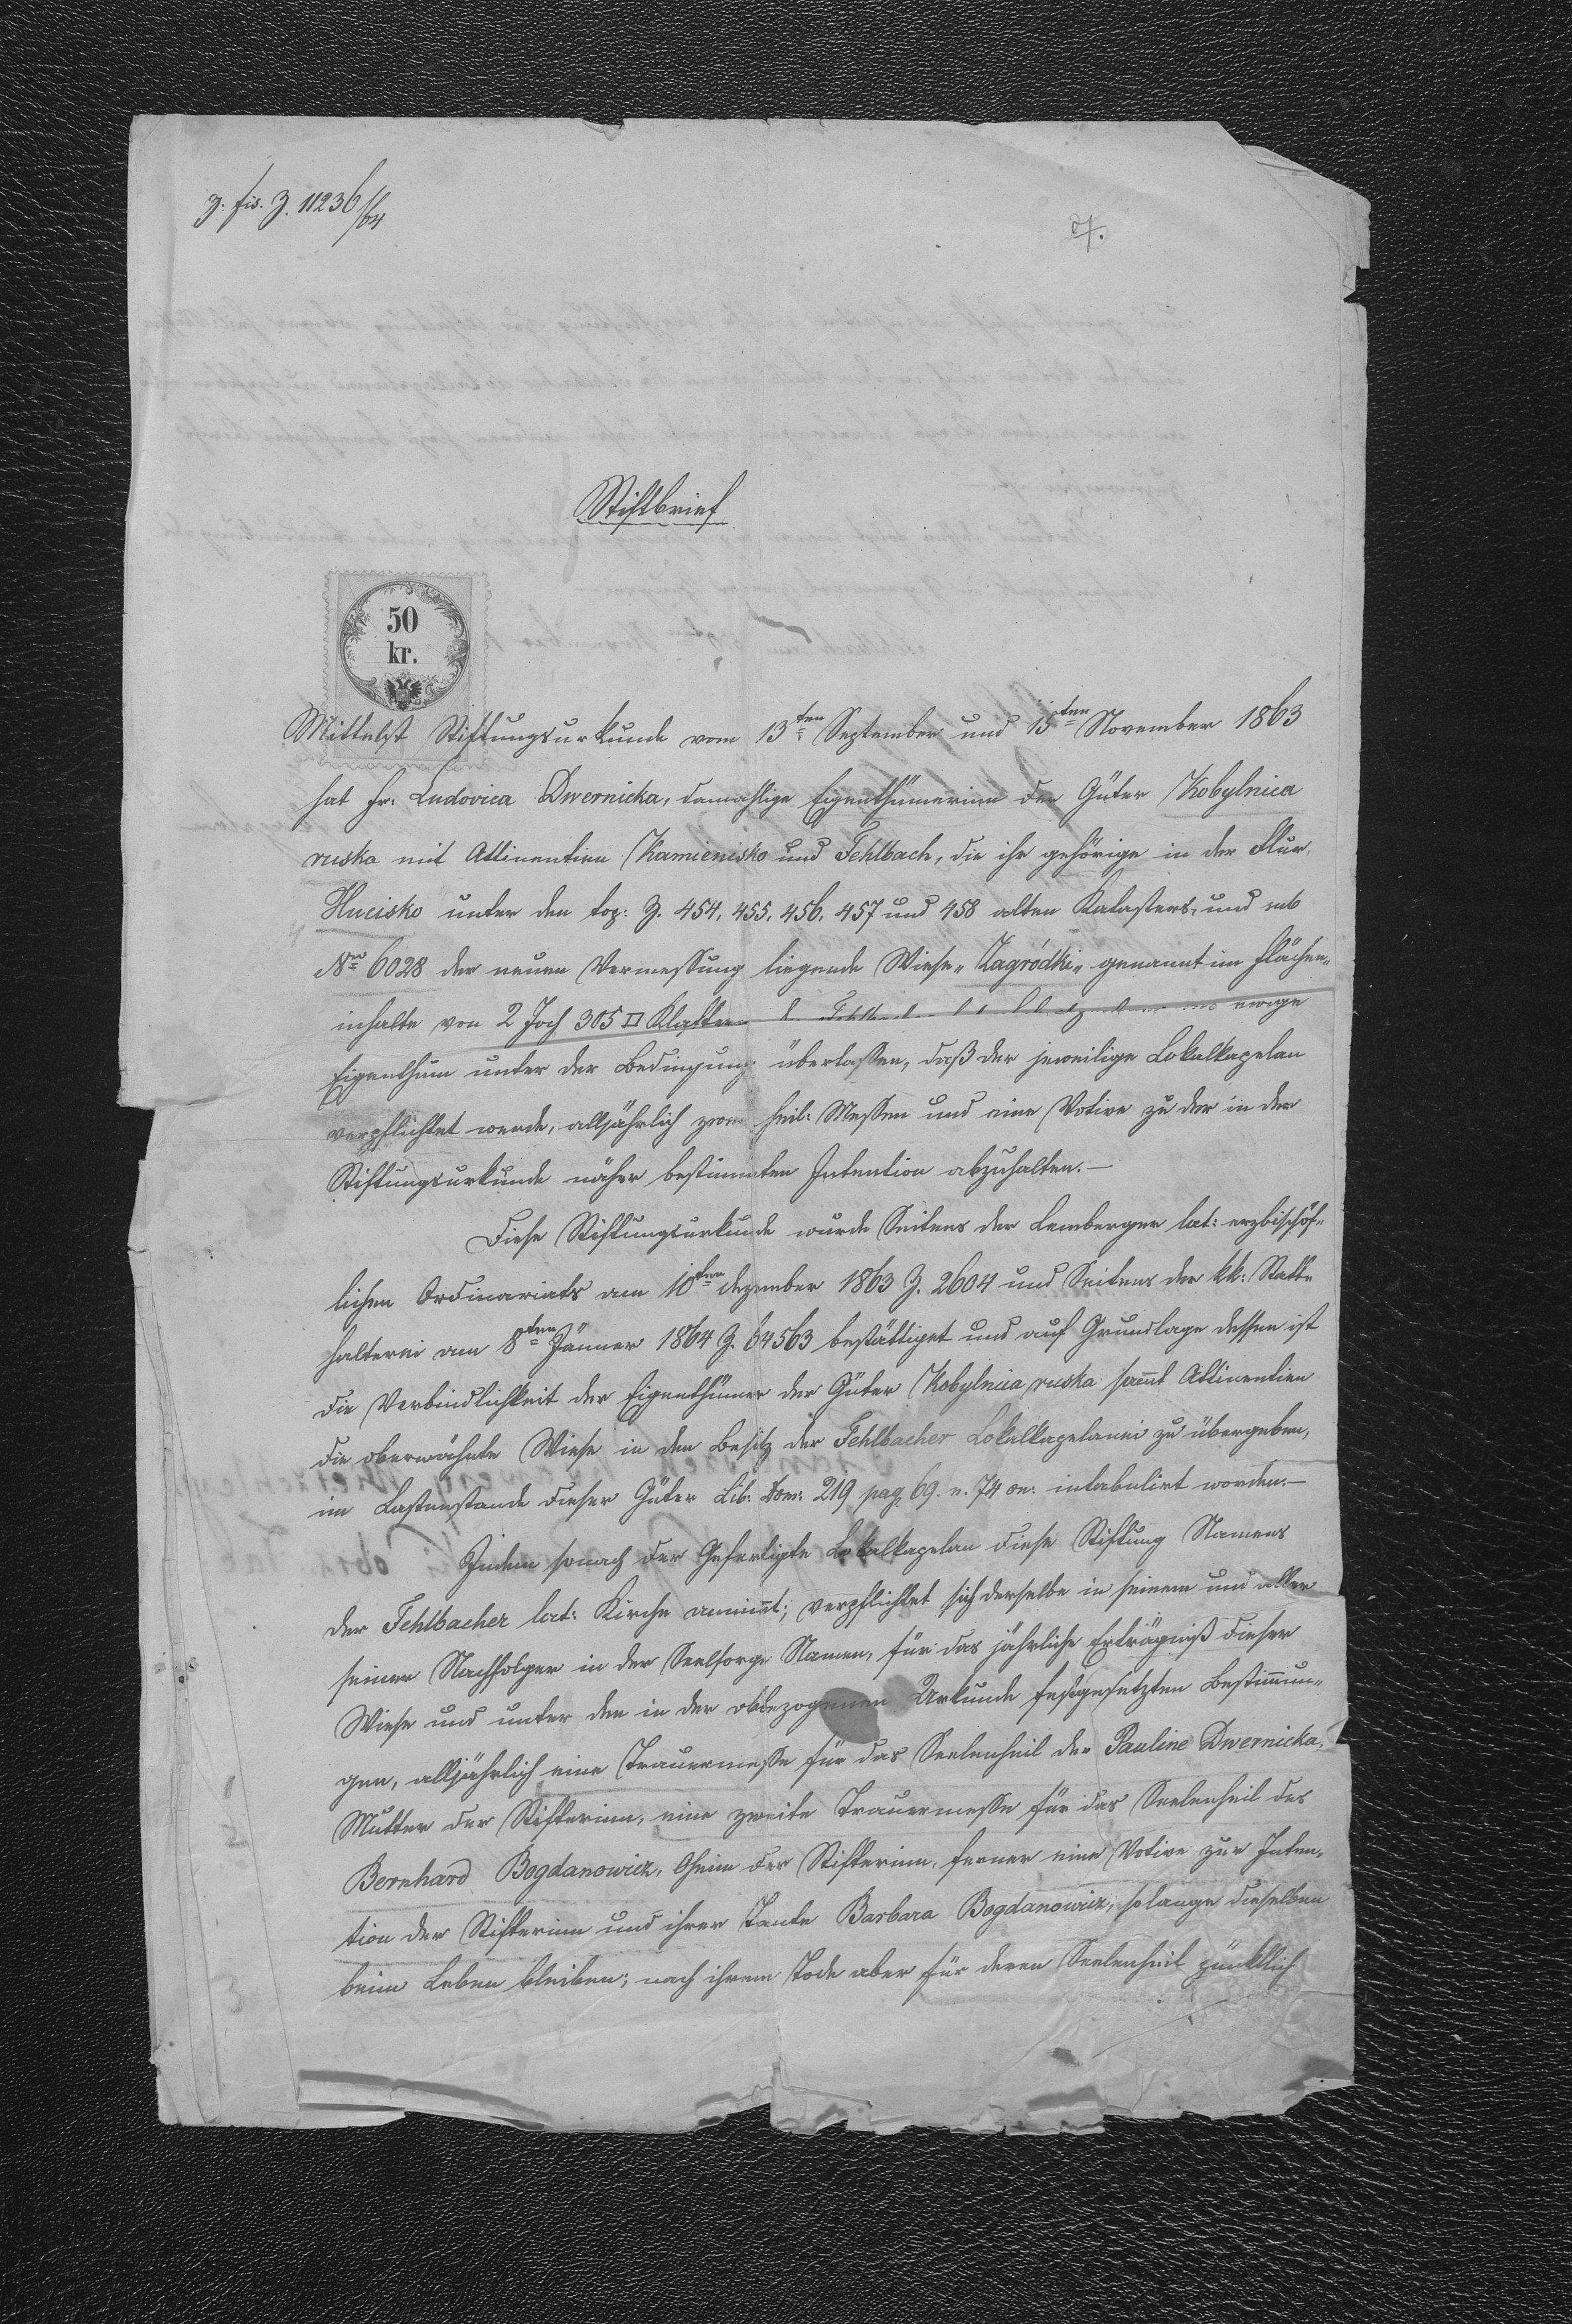 z. fis. Z. 11236/64
27.
Stiftbrief
50
kr.
Mittelst Stiftungsurkunde vom 13ten September und 15ten November 1863
hat Fr: Ludovica Dwernicka, damahlige Eigenthümerinn der Güter Kobylnica
ruska mit Attinentien Kamienisko und Fehlbach, die ihr gehörige in der Flur
Hucisko unter den top: Z. 454, 455, 456, 457 und 458 alten Katasters, und sub
Nro 6028 der neuen Vermessung liegende Wiese „Zagródki„ genannt im Flächen-
inhalte von 2 Joch 305 □ Klafter ewige
Eigenthum unter der Bedingung überlassen, daß der jeweilige Lokalkapelan
verpflichtet werde, alljährlich zwei heil: Messen und eine Votive zu der in der
Stiftungsurkunde näher bestimmten Intention abzuhalten.—
Diese Stiftungsurkunde wurde Seitens der Lemberger lat: erzbischöf-
lichen Ordinariats am 10ten Dezember 1863 Z. 2604 und Seitens der kk: Statt-
halterei am 8ten Jänner 1864 Z. 64563 bestättiget und auf Grundlage dessen ist
die Verbindlichkeit der Eigenthümer der Güter Kobylnica ruska sammt Attinentien
die oberwähnte Wiese in den Besitz der Fehlbacher Lokalkapelanei zu übergeben,
im Lastenstande dieser Güter Lib: Dom: 219 pag. 69. n. 74 on: intabulirt worden.—
Indem sonach der Gefertigte Lokalkapelan diese Stiftung Namens
der Fehlbacher lat: Kirche annimt; verpflichtet sich derselbe in seinem und aller
seiner Nachfolger in der Seelsorge Namen, für das jährliche Erträgniß dieser
Wiese und unter den in der obbezogenen Urkunde festgesetzten Bestimmun-
gen, alljährlich eine Trauermesse für das Seelenheil der Pauline Dwernicka,
Mutter der Stifterinn, eine zweite Trauermesse für das Seelenheil des
Bernhard Bogdanowicz, Oheim der Stifterinn, ferner eine Votive zur Inten-
tion der Stifterinn und ihrer Tante Barbara Bogdanowicz, solange dieselben
beim Leben bleiben; nach ihrem Tode aber für deren Seelenheil pünktlich